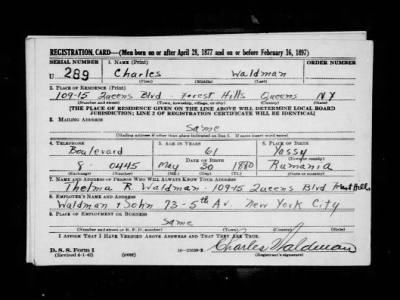 REGISTRATION CARD—(Men born on or after April 28, 1877 and on or before February 16, 1897)
SERIAL NUMBER 1. NAME (Print) ORDER NUMBER
U 289 Charles Waldman
(First) (Middle) (Last)
2. PLACE OF RESIDENCE (Print)
109-15 Queens Blvd Forest Hills Queens NY
(Number and street) (Town, township, village, or city) (County) (State)
[THE PLACE OF RESIDENCE GIVEN ON THE LINE ABOVE WILL DETERMINE LOCAL BOARD
JURISDICTION; LINE 2 OF REGISTRATION CERTIFICATE WILL BE IDENTICAL]
3. MAILING ADDRESS
Same
(Mailing address if other than place indicated on line 2. If same insert word same)
4. TELEPHONE 5. AGE IN YEARS 6. PLACE OF BIRTH
Boulevard 61 Yassy
DATE OF BIRTH (Town or county)
8-0445 May 30 1880 Rumania
(Exchange) (Number) (Mo.) (Day) (Yr.) (State or country)
7. NAME AND ADDRESS OF PERSON WHO WILL ALWAYS KNOW YOUR ADDRESS
Thelma R. Waldman - 109-15 Queens Blvd Forest Hills
8. EMPLOYER'S NAME AND ADDRESS
Waldman + John 73-5th Av. New York City
9. PLACE OF EMPLOYMENT OR BUSINESS
Same
(Number and street or R. F. D. number) (Town) (County) (State)
I AFFIRM THAT I HAVE VERIFIED ABOVE ANSWERS AND THAT THEY ARE TRUE.
D. S. S. Form 1 Charles Waldman
(Revised 4-1-42) (over) (Registrant's signature)